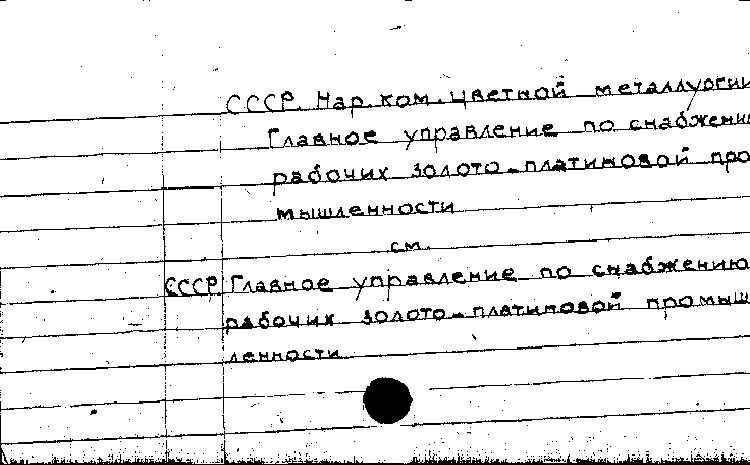 СССР. Нар. ком. цветной металлургии
Главное управление по снабжени
рабочих золото-платиновой про
мышленности
см.
СССР. Главное управление по снабжению
рабочих золото-платиновой промыш
ленности